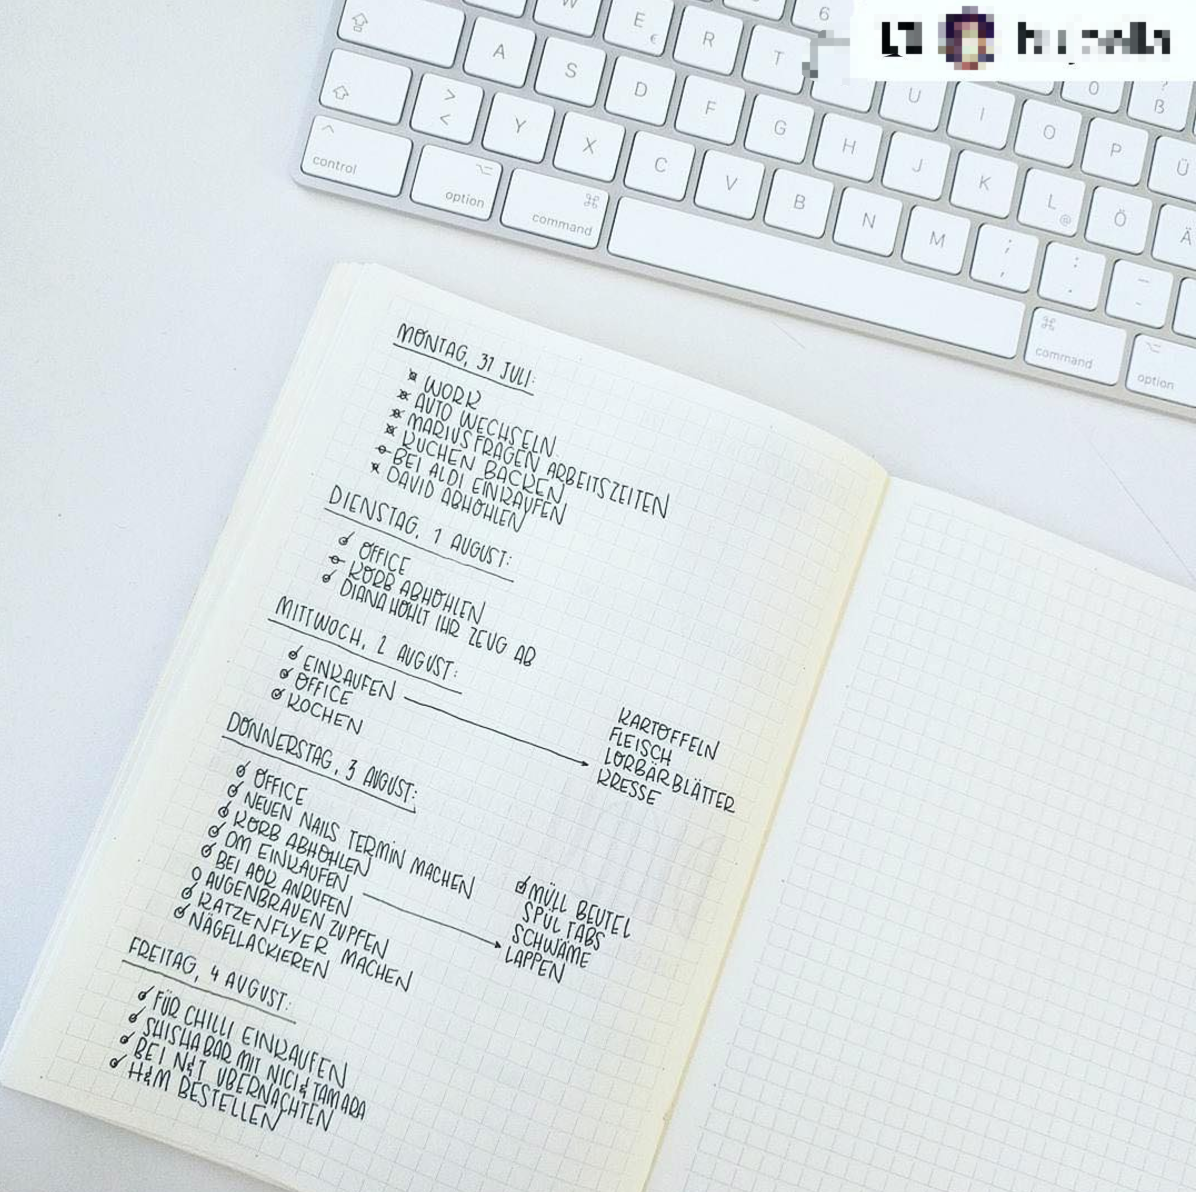 6
W
E
€
R
T
A
S
D
F
G
H
J
K
L
@
Ö
Ä
U
I
O
P
Ü
0
?
ß
>
<
Y
X
C
V
B
N
M
;
,
:
.
_
-
control
option
command
command
option
MONTAG, 31 JULI:
WORK
AUTO WECHSELN
MARIUS FRAGEN ARBEITSZEITEN
KUCHEN BACKEN
BEI ALDI EINKAUFEN
DAVID ABHOHLEN
DIENSTAG, 1 AUGUST:
OFFICE
KORB ABHOHLEN
DIANA HOHLT IHR ZEUG AB
MITTWOCH, 2 AUGUST:
EINKAUFEN
OFFICE
KOCHEN
KARTOFFELN
FLEISCH
LORBÄRBLÄTTER
KRESSE
DONNERSTAG, 3 AUGUST:
OFFICE
NEUEN NAILS TERMIN MACHEN
KORB ABHOHLEN
DM EINKAUFEN
BEI AOK ANRUFEN
AUGENBRAUEN ZUPFEN
KATZENFLYER MACHEN
NÄGELLACKIEREN
MÜLL BEUTEL
SPÜLTABS
SCHWÄME
LAPPEN
FREITAG, 4 AUGUST:
FÜR CHILLI EINKAUFEN
SHISHABAR MIT NICI & TAMARA
BEI N&T ÜBERNACHTEN
H&M BESTELLEN